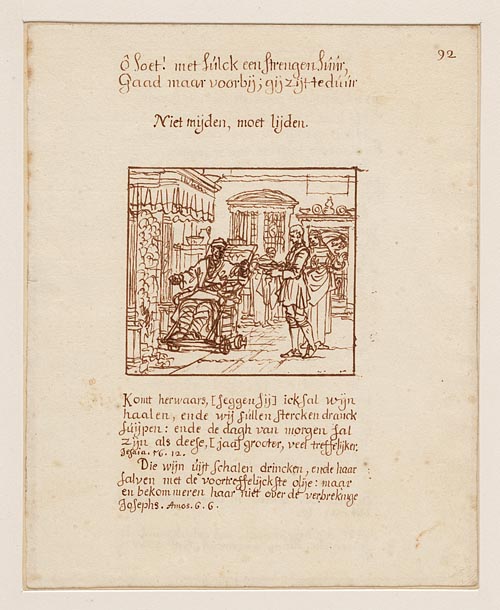 92
ô Soet! met sulck een strengen suur,
Gaad maar voorbij; gij zijt te duur
Niet mijden, moet lijden.
Komt herwaars, [seggen sij] ick sal wijn
haalen, ende wij sullen stercken dranck
suijpen: ende de dagh van morgen sal
zijn als deese, [jaa] grooter, veel treffelijker.
Jesaia. 56. 12.
Die wijn uijt schalen drincken, ende haar
salven met de voortreffelijckste olije: maar
en bekommeren haar niet over de verbrekinge
Josephs. Amos. 6. 6.